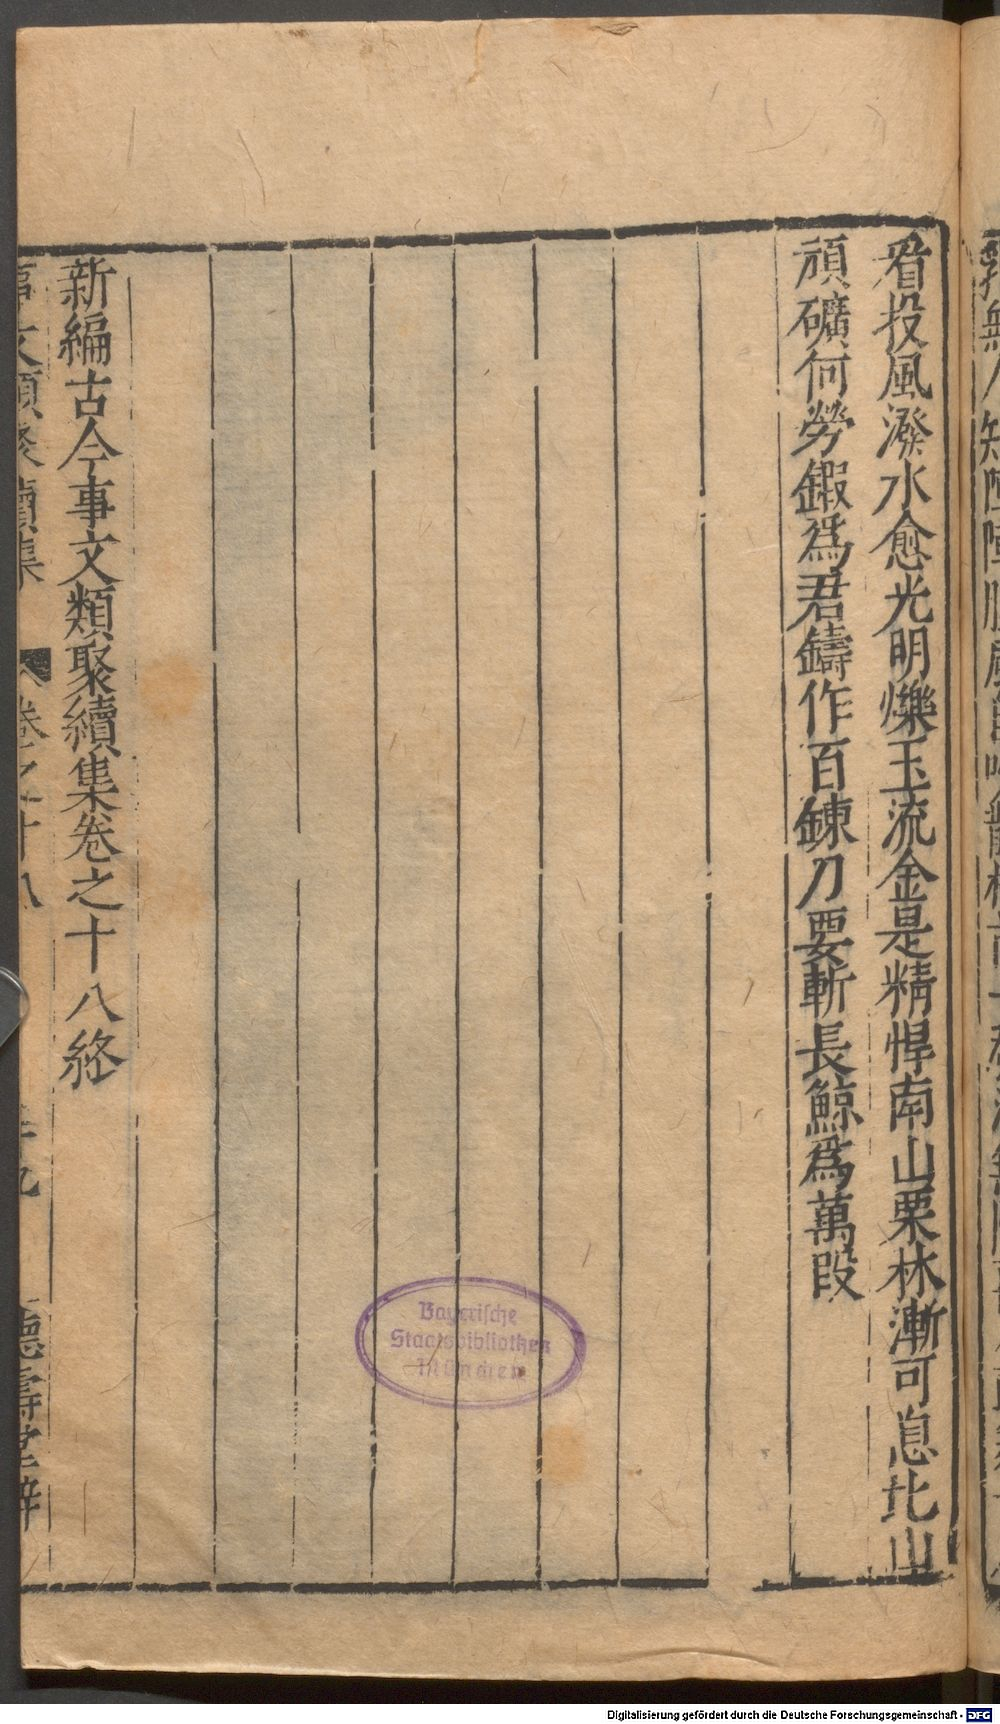 看投風潑水愈光明爍玉流金是精悍南山栗林漸可息北山
頑礦何勞鍛爲君鑄作百鍊刀要斬長鯨爲萬段
新編古今事文類聚續集卷之十八終
事文類聚續集 卷之十八 德壽堂梓
Bayerische
Staatsbibliothek
München
Digitalisierung gefördert durch die Deutsche Forschungsgemeinschaft - DFG